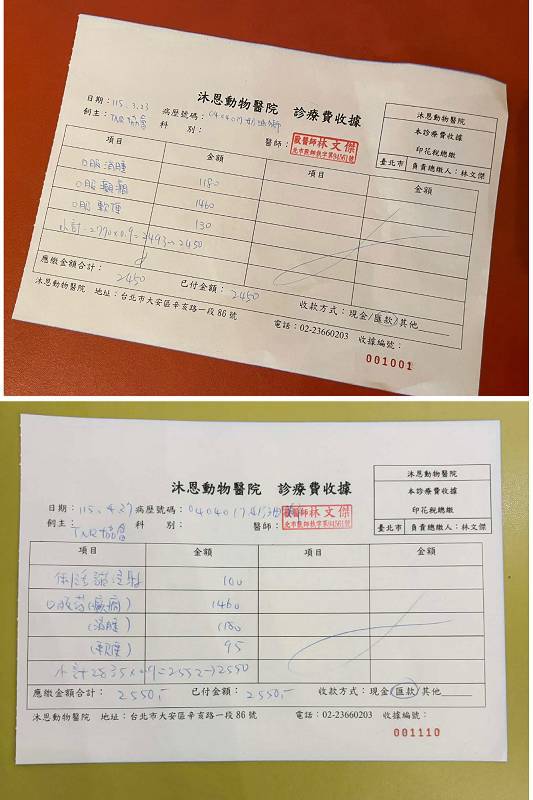 沐恩動物醫院 診療費收據
日期：115.3.23 病歷號碼：040401
飼主：TNR協會 科 別： 醫師： 獸醫師林文傑
沐恩動物醫院
本診療費收據
印花稅總繳
臺北市 負責總繳人：林文傑
項目 金額 項目 金額
口服消腫 1180
口服癲癇 1460
口服軟便 130
小計：2770×0.9=2493→2450
應繳金額合計： 2450 已付金額： 2450 收款方式：現金/匯款/其他
沐恩動物醫院 地址：台北市大安區辛亥路一段86號 電話：02-23660203 收據編號：
001001
沐恩動物醫院 診療費收據
日期：115.4.27 病歷號碼：040401
飼主：TNR協會 科 別： 醫師： 獸醫師林文傑
沐恩動物醫院
本診療費收據
印花稅總繳
臺北市 負責總繳人：林文傑
項目 金額 項目 金額
注射 100
口服葯(癲癇) 1460
(消腫) 1180
(軟便) 95
小計2835×0.9=2552→2550
應繳金額合計： 2550.- 已付金額： 2550.- 收款方式：現金/匯款/其他
沐恩動物醫院 地址：台北市大安區辛亥路一段86號 電話：02-23660203 收據編號：
001110